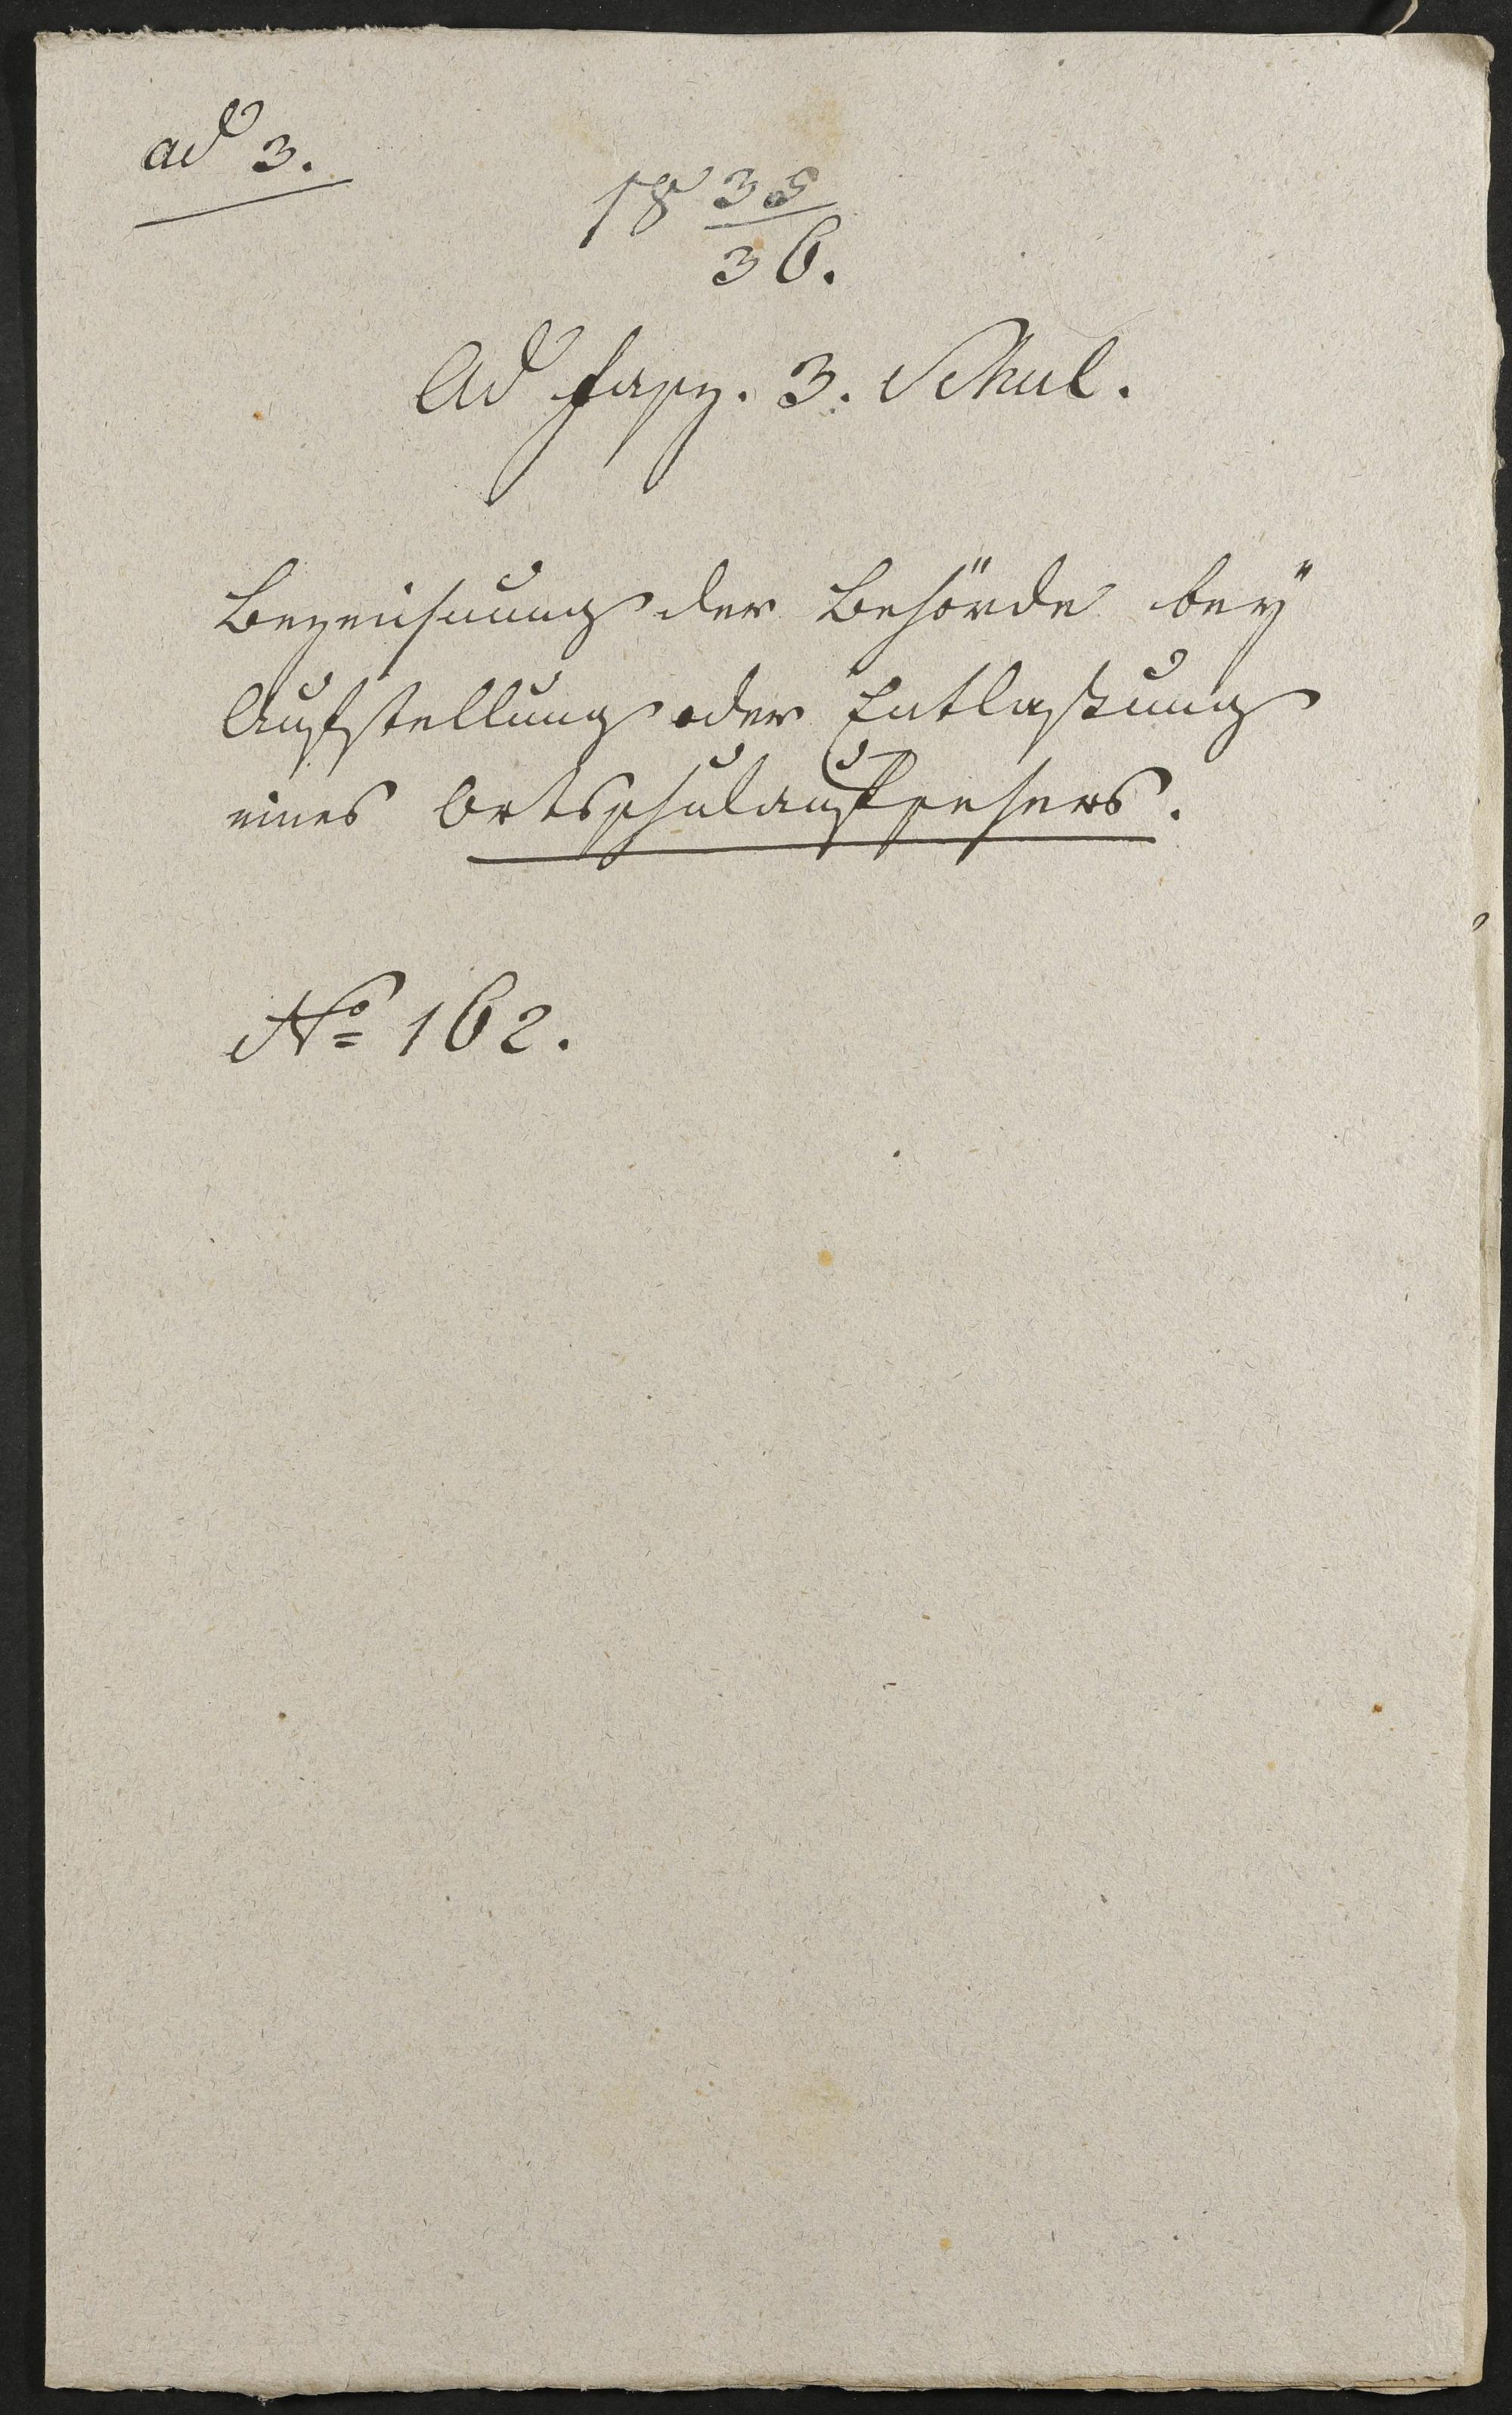 ad 3.
18 35/36.
Ad fasz. 3. Schul.
Bezeichnung der Behörde beÿ
Aufstellung oder Entlaßung
eines Ortsschulaufsehers.
No 162.